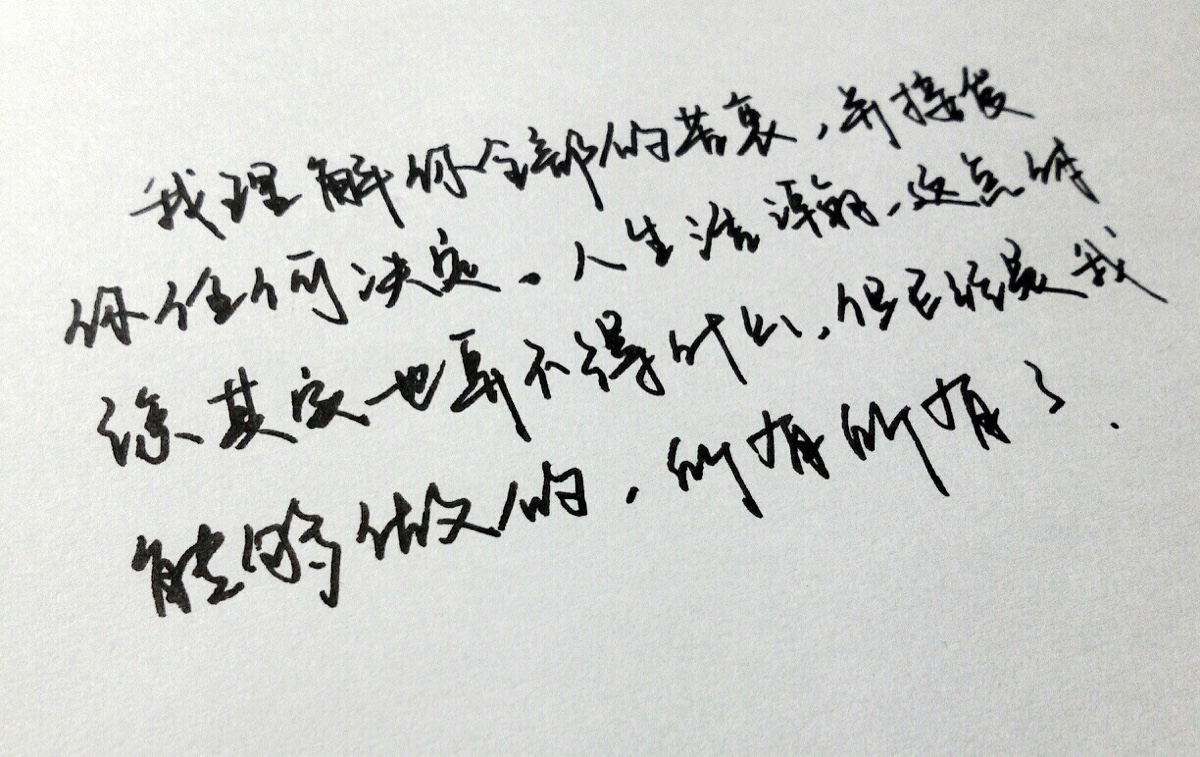 我理解你全部的苦衷，并接受
你任何决定。人生浩瀚，这点体
谅其实也算不得什么，但已经是我
能够做的，所有所有了.